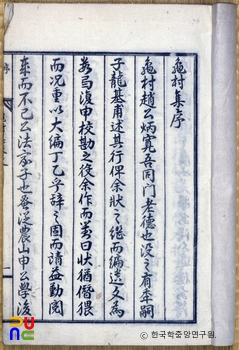 龜村集序
龜村趙公炳寬吾同門老德也沒之有年嗣
子龍基甫述其行俾余狀之繼而編遺文爲
若局復申校勘之役余作而曰狀猶僭猥
而況重以大編丁乙乎辭之固而請益勤閱
歲而不已公法家子也蚤從農山申公學後
한국학중앙연구원